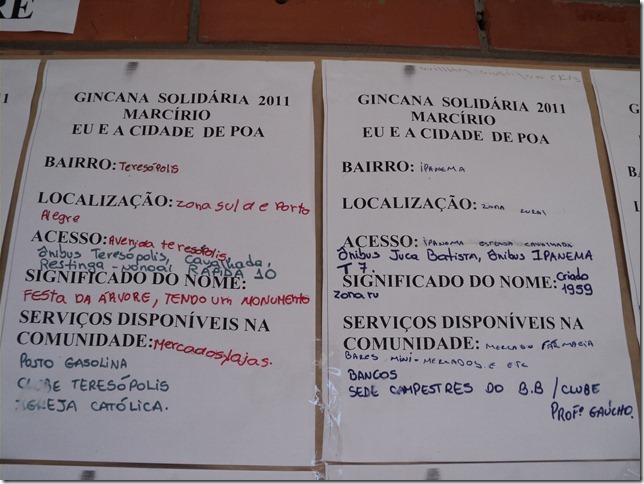 RE
GINCANA SOLIDÁRIA 2011
MARCÍRIO
EU E A CIDADE DE POA
BAIRRO: Teresópolis
LOCALIZAÇÃO: zona sul de Porto
Alegre
ACESSO: Avenida teresópolis,
ônibus Teresópolis, Cavalhada,
Restinga - nonoai RÁPIDA 10
SIGNIFICADO DO NOME:
FESTA DA ÁRVORE, TENDO UM MONUMENTO
SERVIÇOS DISPONÍVEIS NA
COMUNIDADE: Mercados, lojas.
POSTO GASOLINA
CLUBE TERESÓPOLIS
IGREJA CATÓLICA.
GINCANA SOLIDÁRIA 2011
MARCÍRIO
EU E A CIDADE DE POA
BAIRRO: IPANEMA
LOCALIZAÇÃO: ZONA RURAL
ACESSO: IPANEMA CAVALHADA
ônibus Juca Batista, ônibus IPANEMA
T7.
SIGNIFICADO DO NOME: Criado
1959
zona ru
SERVIÇOS DISPONÍVEIS NA
COMUNIDADE: MERCADO FARMACIA
BARES MINI-MERCADOS E ETC
BANCOS
SEDE CAMPESTRES DO B.B / CLUBE
PROFº GAÚCHO.